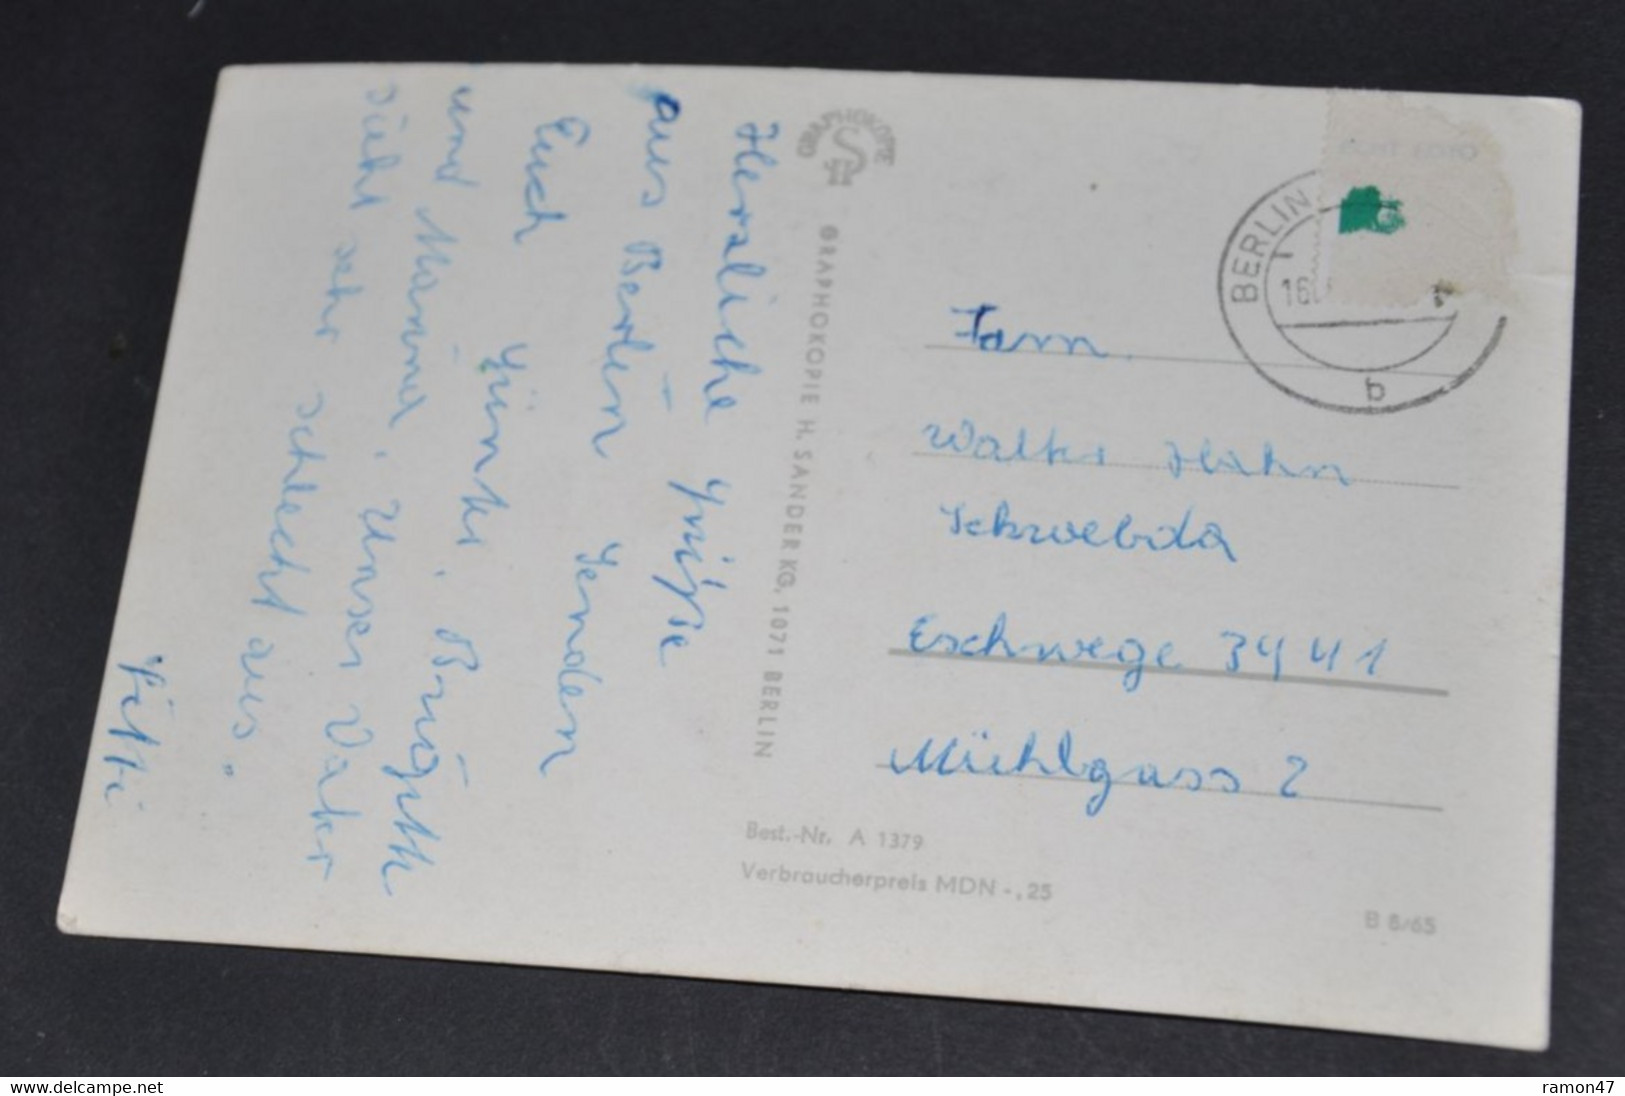 Herzliche Grüße
aus Berlin senden
Euch Günter
und Mama. Unser Vater
sieht sehr schlecht aus.
GRAPHOKOPIE
GRAPHOKOPIE H. SANDER KG, 1071 BERLIN
BERLIN
16
b
Fam.
Walter Hahn
Schwebda
Eschwege 3441
Mühlgass 2
Best.-Nr. A 1379
Verbraucherpreis MDN -,25
B 8/65
www.delcampe.net
ramon47